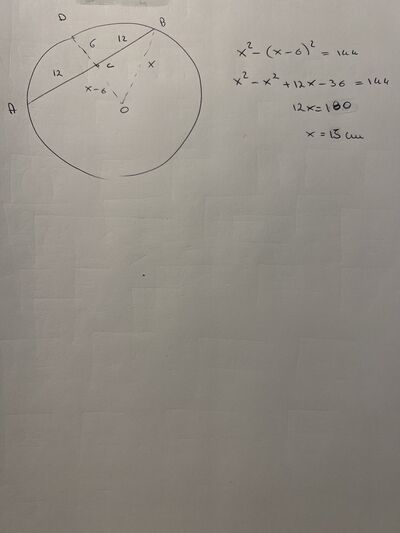 D
B
6
12
12
C
x
x-6
A
O
x² - (x-6)² = 144
x² - x² + 12x - 36 = 144
12x = 180
x = 15 cm